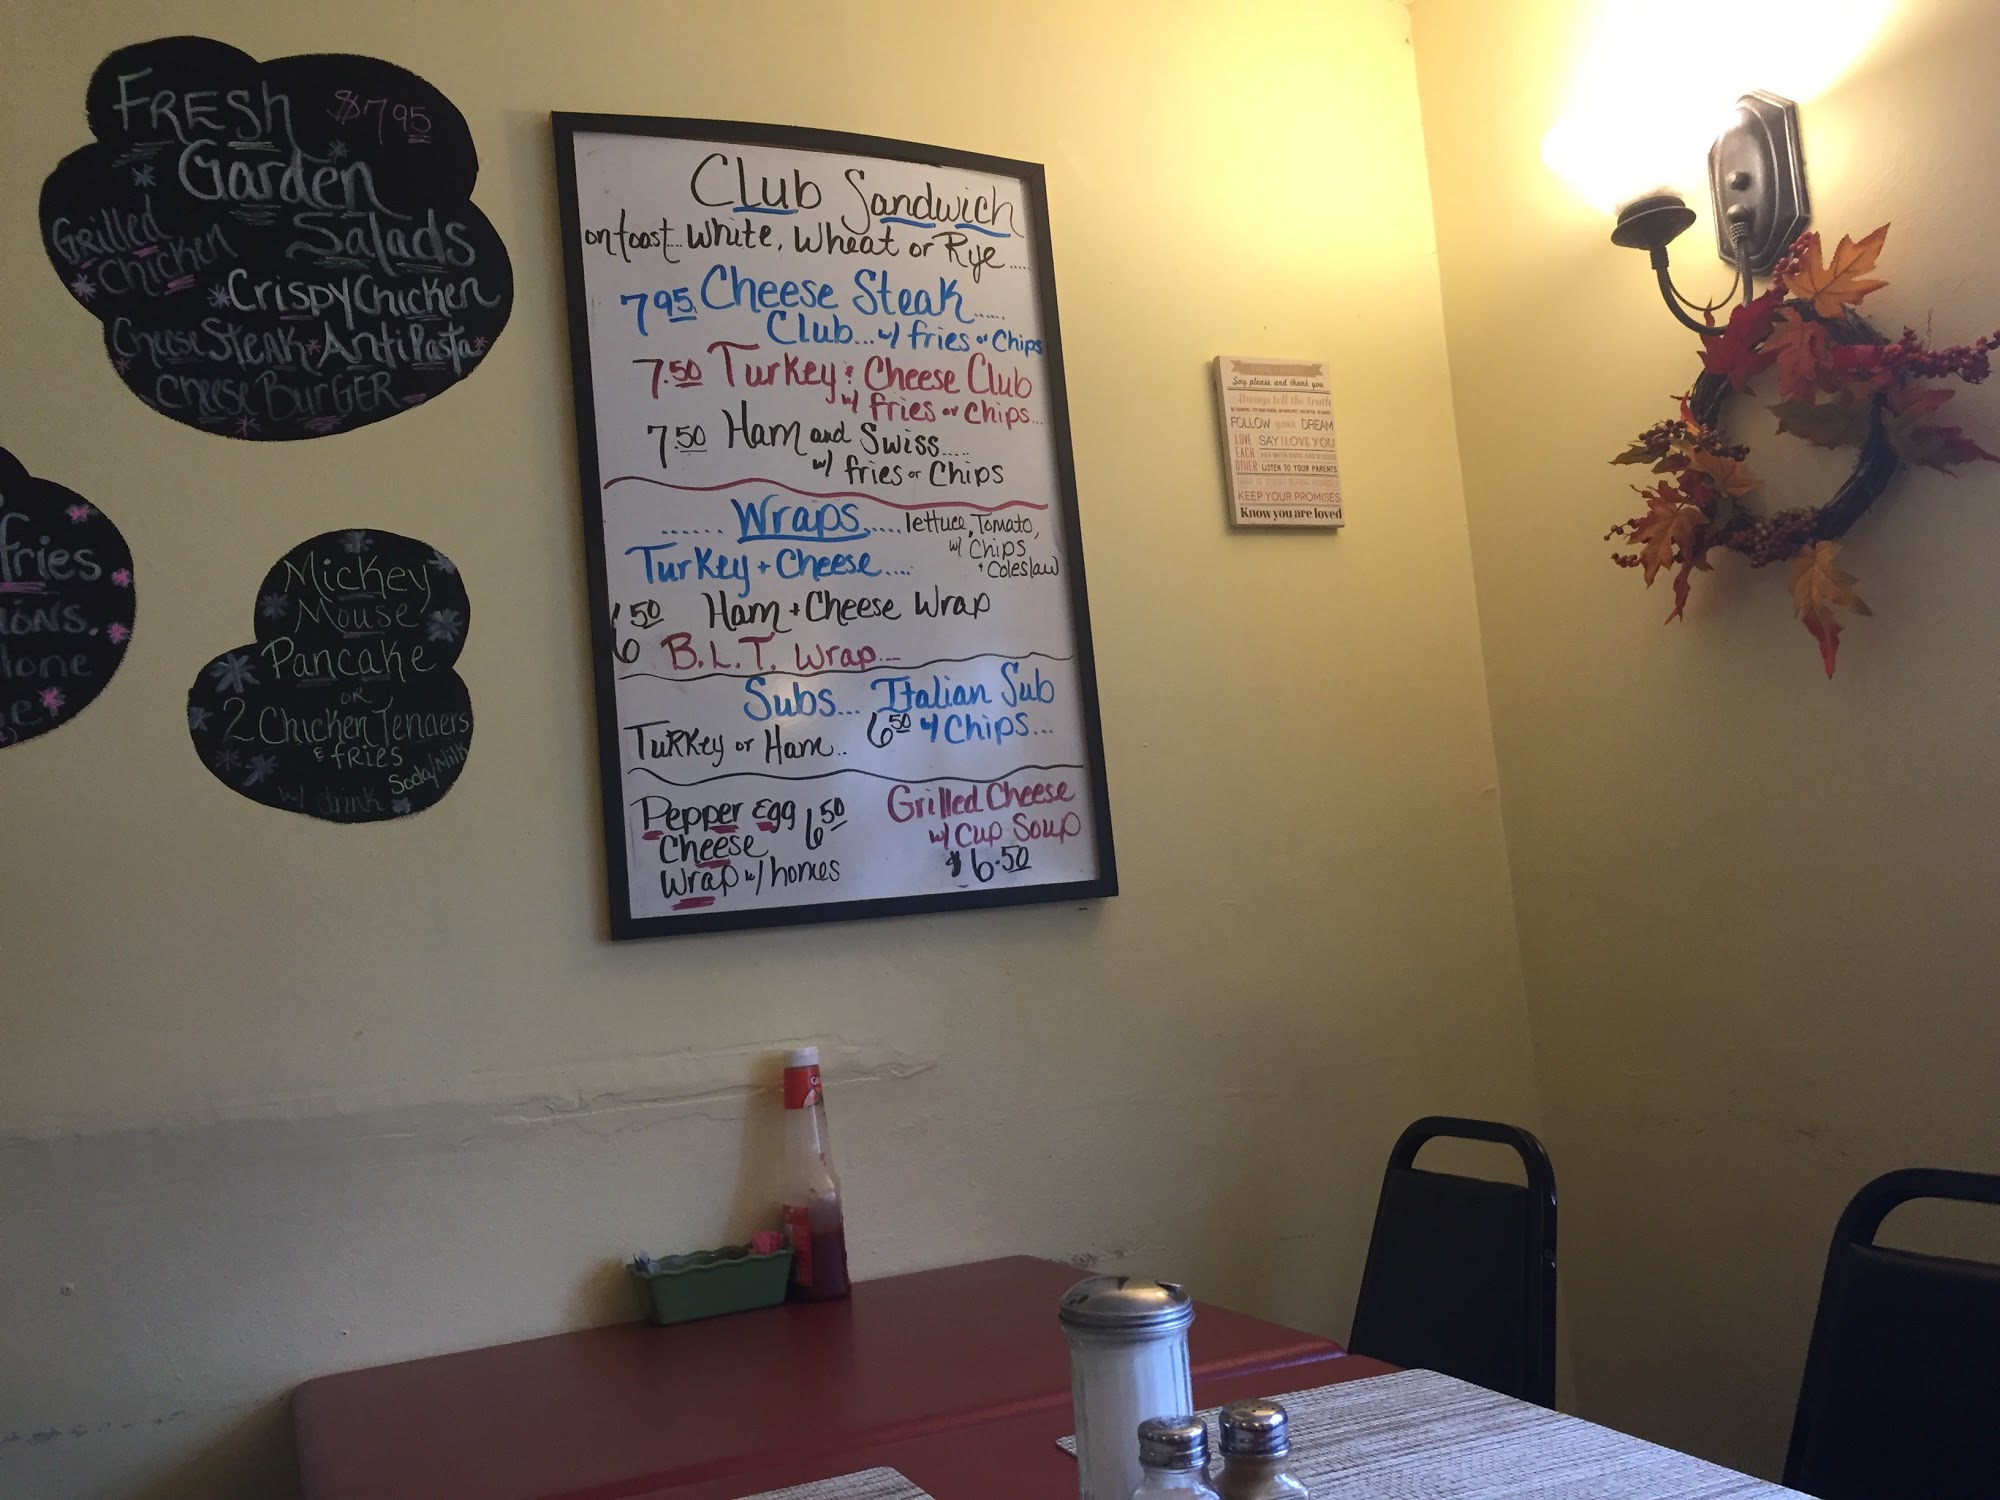 FRESH $7.95
Garden
Salads
Grilled
Chicken
Crispy Chicken
Cheese Steak * AntiPasta
Cheese BURGER
fries
Mickey
Mouse
Pancake
OR
2 Chicken Tenders
& fries
w/ drink Soda/Milk
CLub Sandwich
on toast... White, Wheat or Rye.....
7.95 Cheese Steak......
Club... w/ fries or Chips
7.50 Turkey & Cheese Club
w/ fries or chips...
7.50 Ham and Swiss.....
w/ fries or Chips
...... Wraps..... lettuce, Tomato,
w/ Chips
+ Coleslaw
Turkey + Cheese....
6 50 Ham + Cheese Wrap
6 B.L.T. Wrap...
Subs... Italian Sub
Turkey or Ham.. 6 50 w/ Chips...
Pepper Egg 6 50
Cheese
Wrap w/ homes
Grilled Cheese
w/ Cup Soup
$6.50
Say please and thank you
Always tell the truth
FOLLOW your DREAM
LOVE EACH OTHER
SAY I LOVE YOU
LISTEN TO YOUR PARENTS
KEEP YOUR PROMISES
Know you are loved